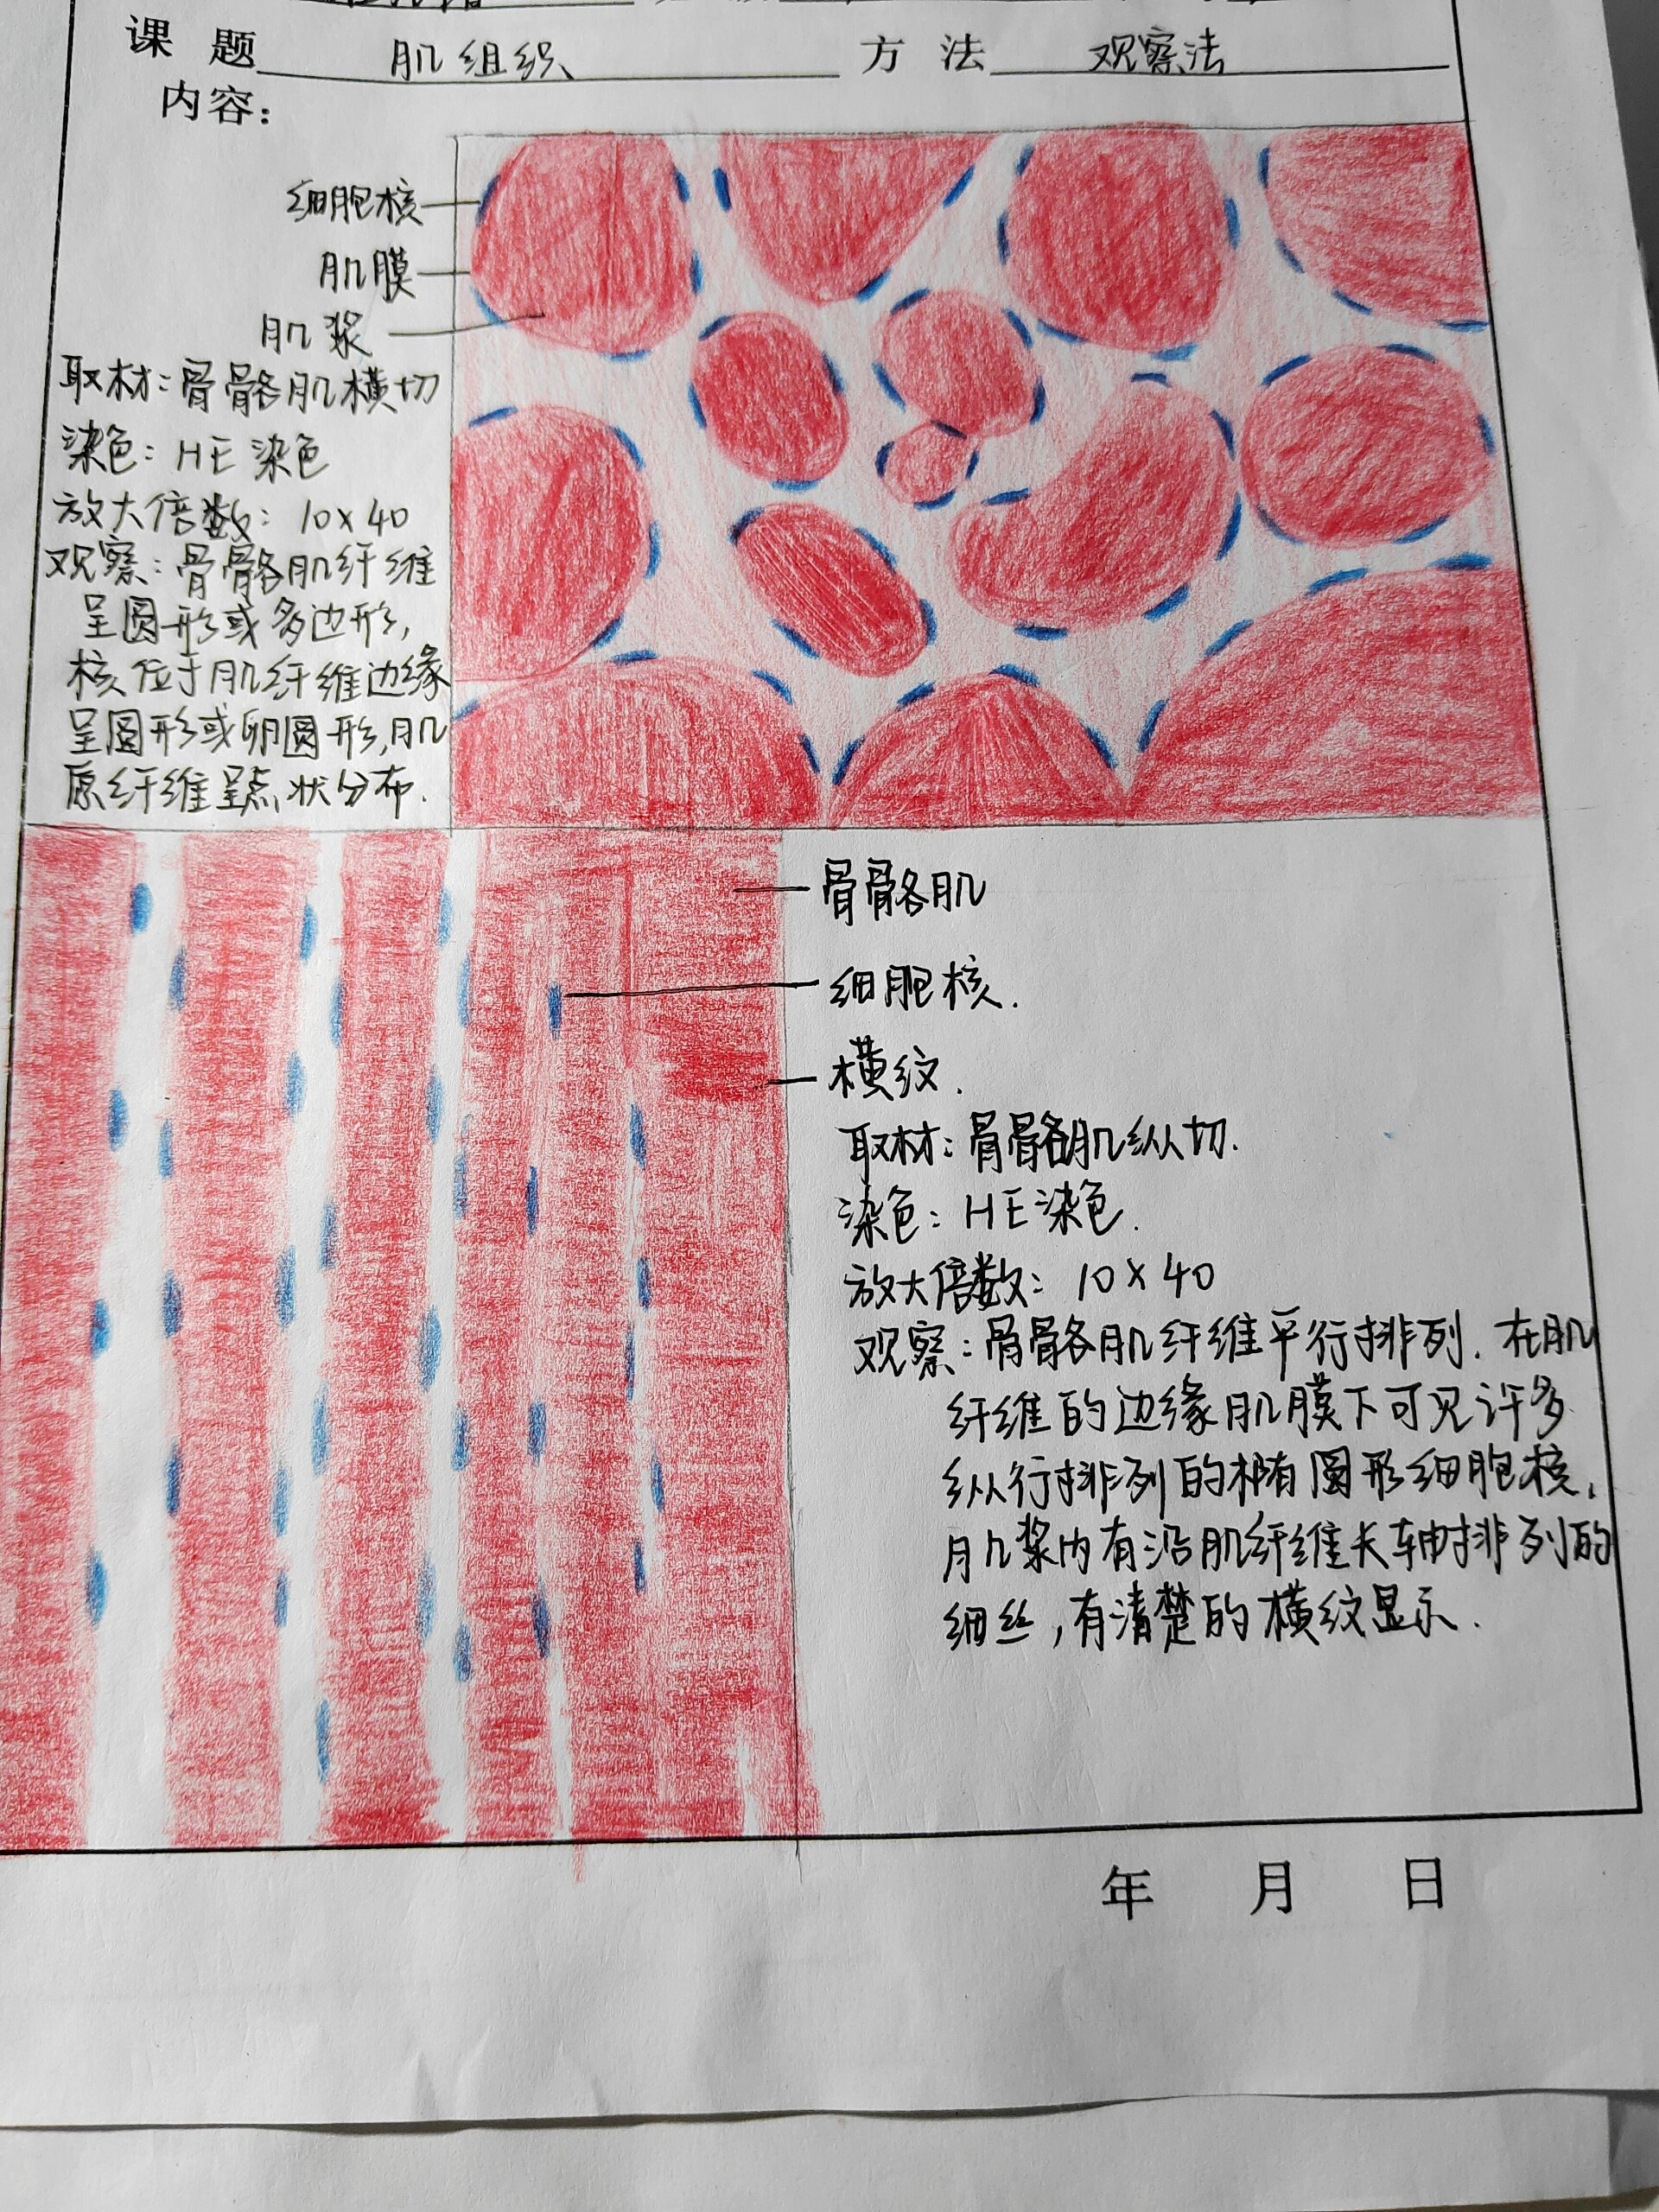 课 题 肌组织 方 法 观察法
内容:
细胞核
肌膜
肌浆
取材:骨骼肌横切
染色:HE染色
放大倍数:10×40
观察:骨骼肌纤维
呈圆形或多边形,
核位于肌纤维边缘
呈圆形或卵圆形,肌
原纤维呈点状分布.
骨骼肌
细胞核.
横纹.
取材:骨骼肌纵切.
染色:HE染色.
放大倍数:10×40
观察:骨骼肌纤维平行排列.在肌
纤维的边缘肌膜下可见许多
纵行排列的椭圆形细胞核,
肌浆内有沿肌纤维长轴排列的
细丝,有清楚的横纹显示.
年 月 日